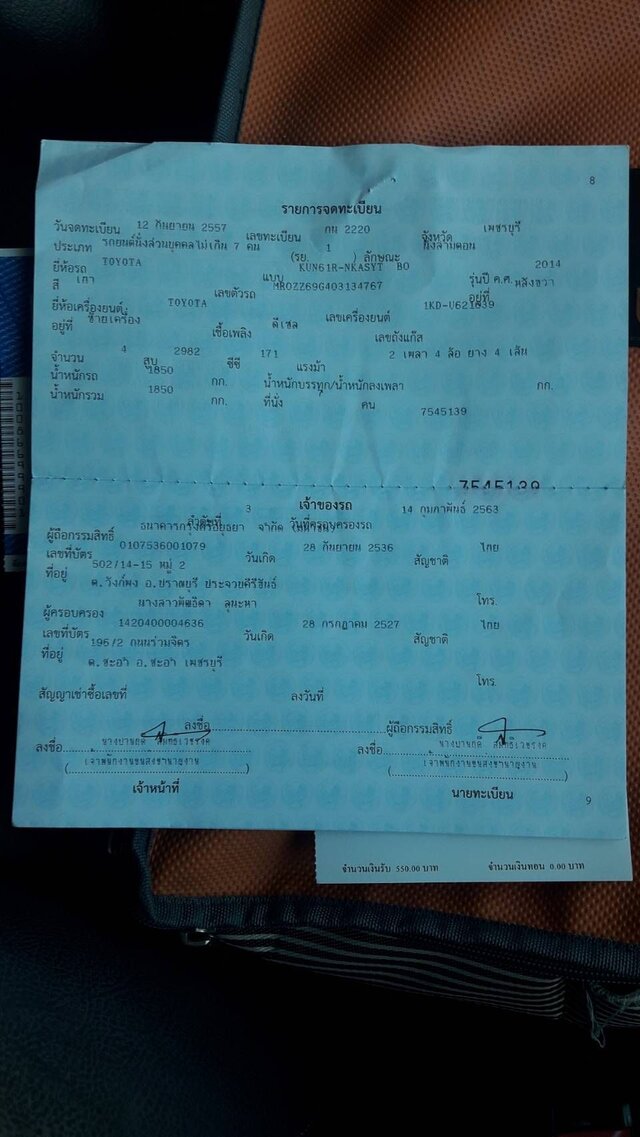 8
รายการจดทะเบียน
วันจดทะเบียน 12 กันยายน 2557 เลขทะเบียน กน 2220 จังหวัด เพชรบุรี
ประเภท รถยนต์นั่งส่วนบุคคลไม่เกิน 7 คน (รย. 1 ) ลักษณะ นั่งสามตอน
ยี่ห้อรถ TOYOTA แบบ KUN61R-NKASYT BO รุ่นปี ค.ศ. 2014
สี เทา เลขตัวรถ MR0ZZ69G403134767 อยู่ที่ หลังขวา
ยี่ห้อเครื่องยนต์ TOYOTA เลขเครื่องยนต์
อยู่ที่ ซ้ายเครื่อง เชื้อเพลิง ดีเซล เลขถังแก๊ส
จำนวน 4 สูบ 2982 ซีซี 171 แรงม้า 2 เพลา 4 ล้อ ยาง 4 เส้น
น้ำหนักรถ 1850 กก. น้ำหนักบรรทุก/น้ำหนักลงเพลา กก.
น้ำหนักรวม 1850 กก. ที่นั่ง 7 คน 7545139
7545139
เจ้าของรถ
ลำดับที่ 3 วันที่ครอบครองรถ 14 กุมภาพันธ์ 2563
ผู้ถือกรรมสิทธิ์ ธนาคารกรุงศรีอยุธยา จำกัด
เลขที่บัตร 0107536001079 วันเกิด 28 กันยายน 2536 สัญชาติ ไทย
ที่อยู่ 502/14-15 หมู่ 2
ต.วังก์พง อ.ปราณบุรี ประจวบคีรีขันธ์
โทร.
ผู้ครอบครอง นางสาวพัชธิดา
เลขที่บัตร 1420400004636 วันเกิด 28 กรกฎาคม 2527 สัญชาติ ไทย
ที่อยู่ 196/2 ถนนร่วมจิตร
ต.ชะอำ อ.ชะอำ เพชรบุรี
โทร.
สัญญาเช่าซื้อเลขที่ ลงวันที่
ลงชื่อ ผู้ถือกรรมสิทธิ์
ลงชื่อ ลงชื่อ
เจ้าหน้าที่ นายทะเบียน
9
จำนวนเงินรับ 550.00 บาท จำนวนเงินทอน 0.00 บาท